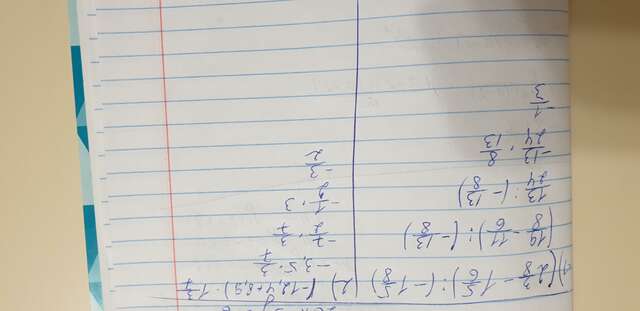 1) (2 3/8 − 1 5/6) : (−1 5/8)
(19/8 − 11/6) : (−13/8)
13/24 : (−13/8)
−13/24 · 8/13
−1/3
2) (−12,4 + 8,9) · 1 3/7
−3,5 · 3/7
−7/2 · 3/7
−1/2 · 3
−3/2